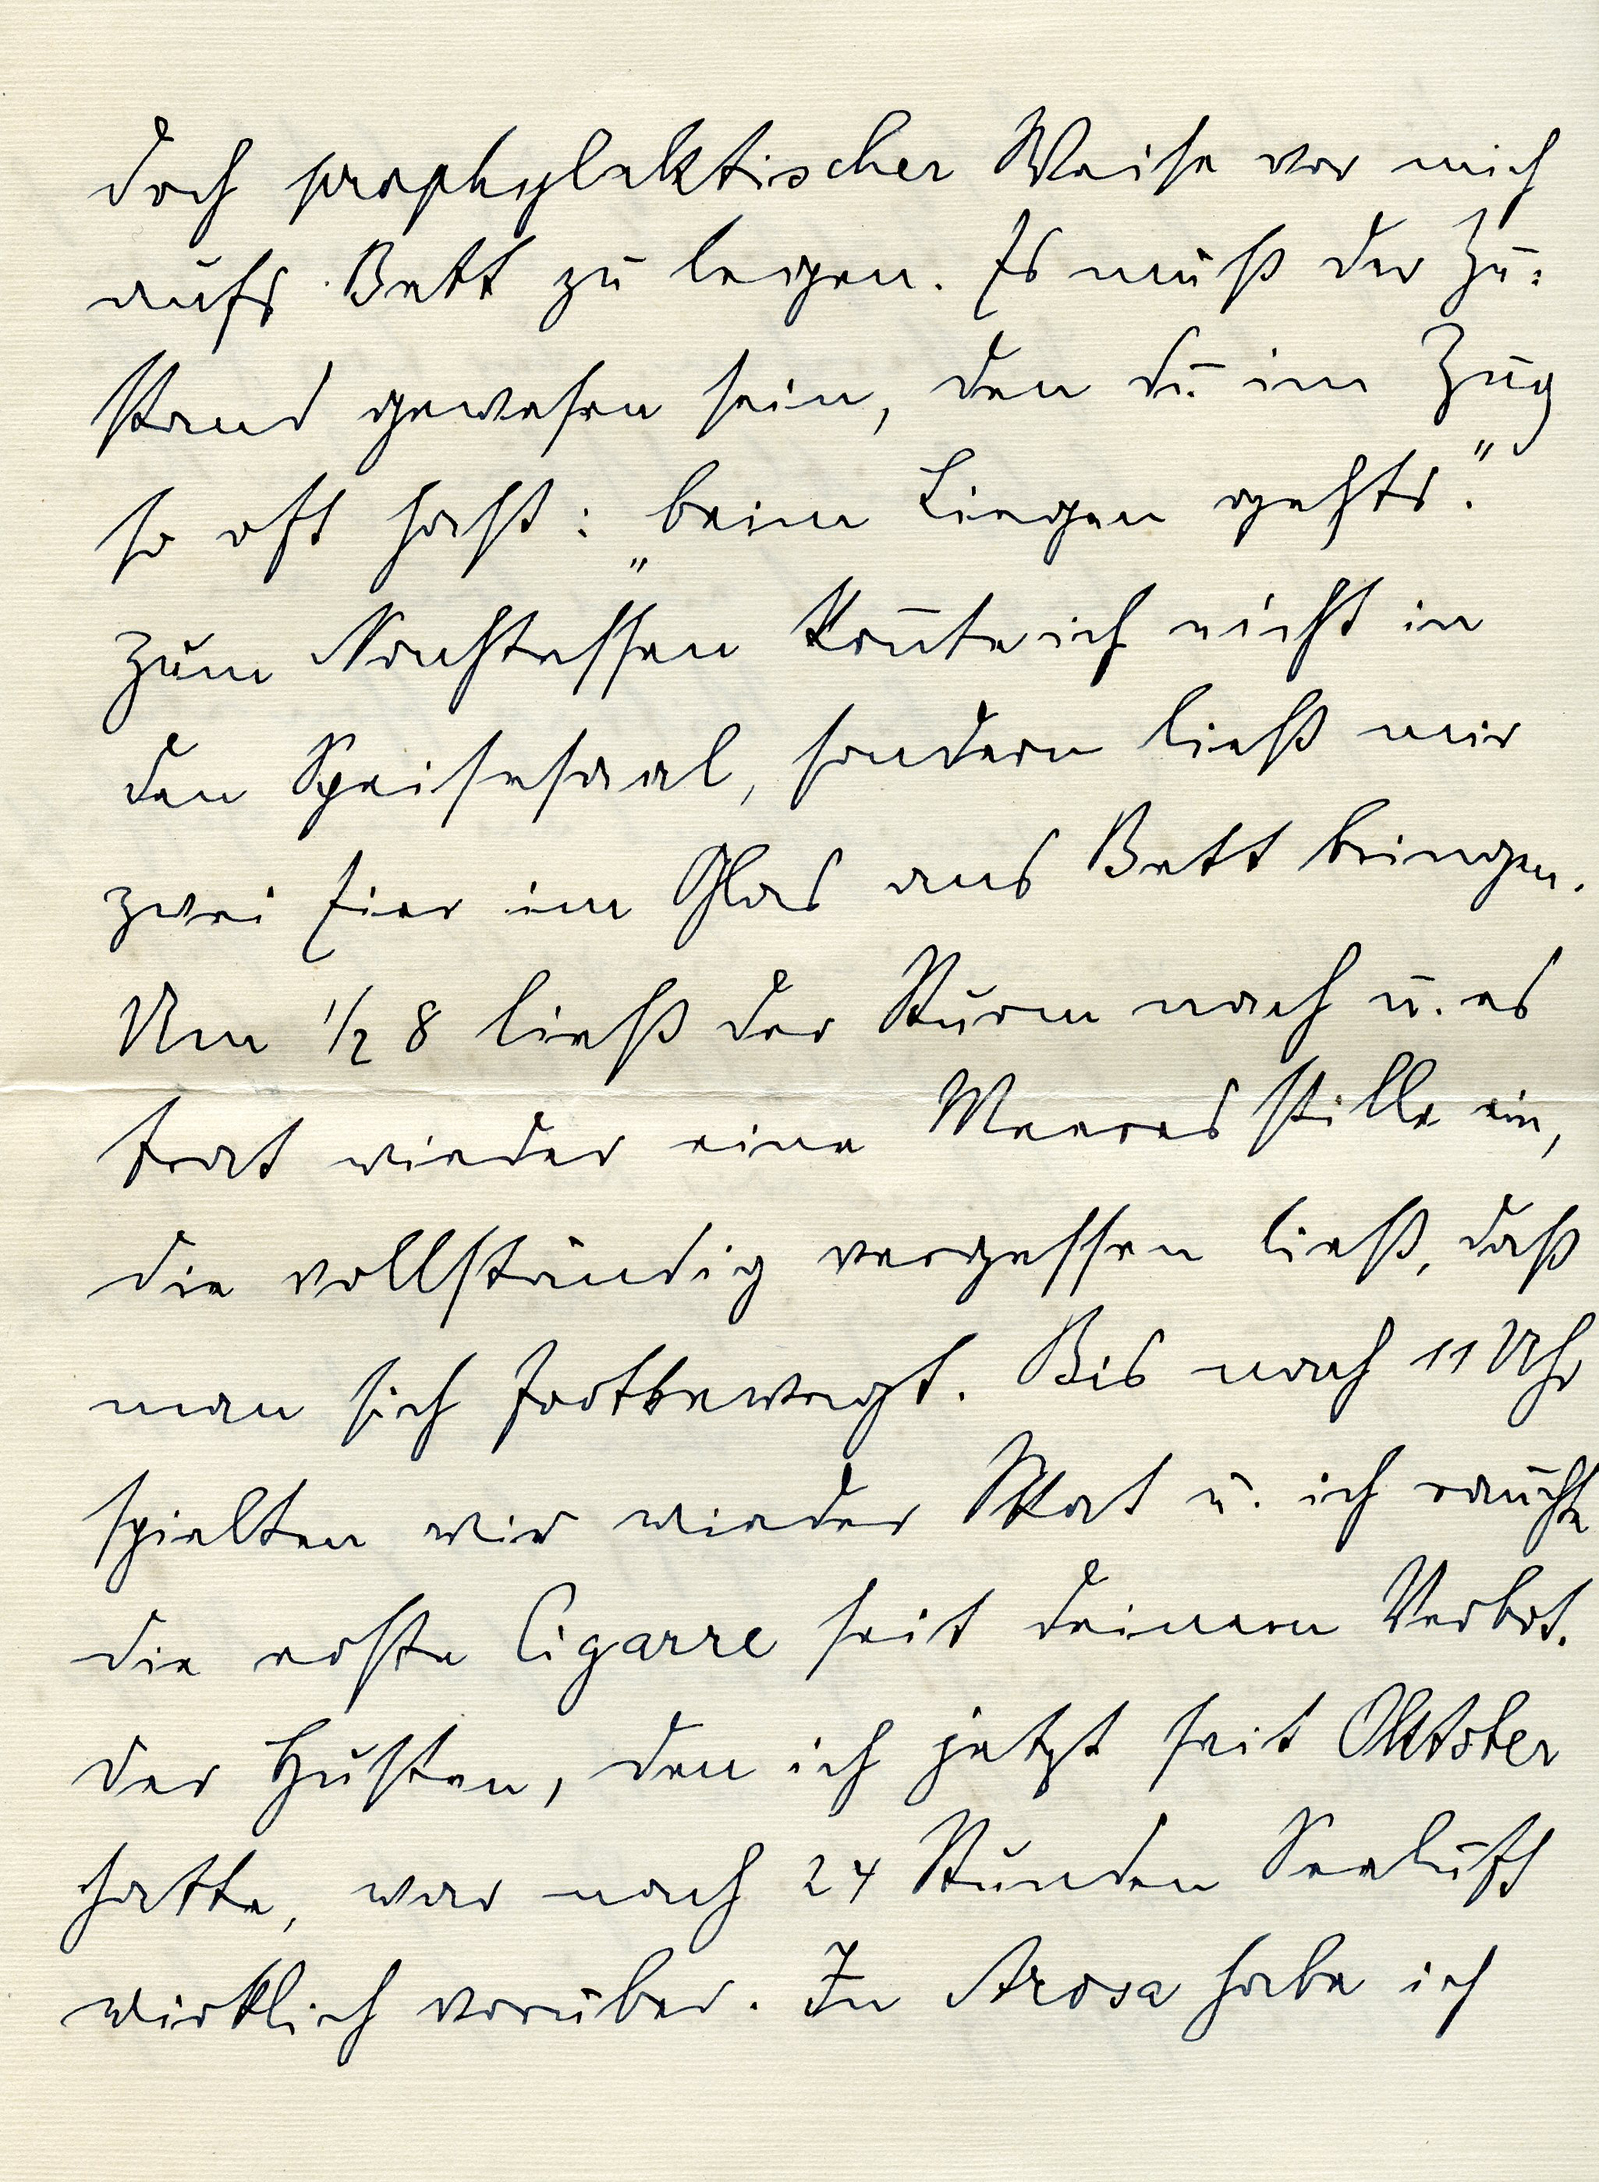 doch prophylaktischer Weise vor mich
aufs Bett zu legen. Es muß der Zu-
stand gewesen sein, den du im Zug
so oft hast: „beim Liegen gehts."
Zum Nachtessen kon̄te ich nicht in
den Speisesaal, sondern ließ mir
zwei Eier im Glas ans Bett bringen.
Um ½ 8 ließ der Sturm nach u. es
trat wieder eine Meeresstille ein,
die vollständig vergessen ließ, daß
man sich fortbewegt. Bis nach 11 Uhr
spielten wir wieder Skat u. ich rauchte
die erste Cigarre seit deinem Verbot.
Der Husten, den ich jetzt seit Oktober
hatte, war nach 24 Stunden Seeluft
wirklich vorüber. In Arosa habe ich